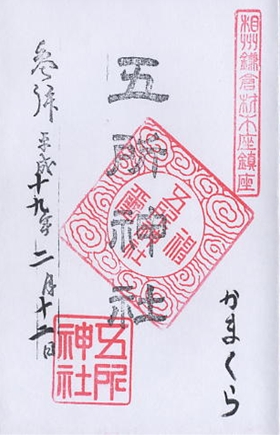 相州鎌倉材木座鎮座
五所神社
かまくら
参拝
平成十九年二月十二日
五所神社